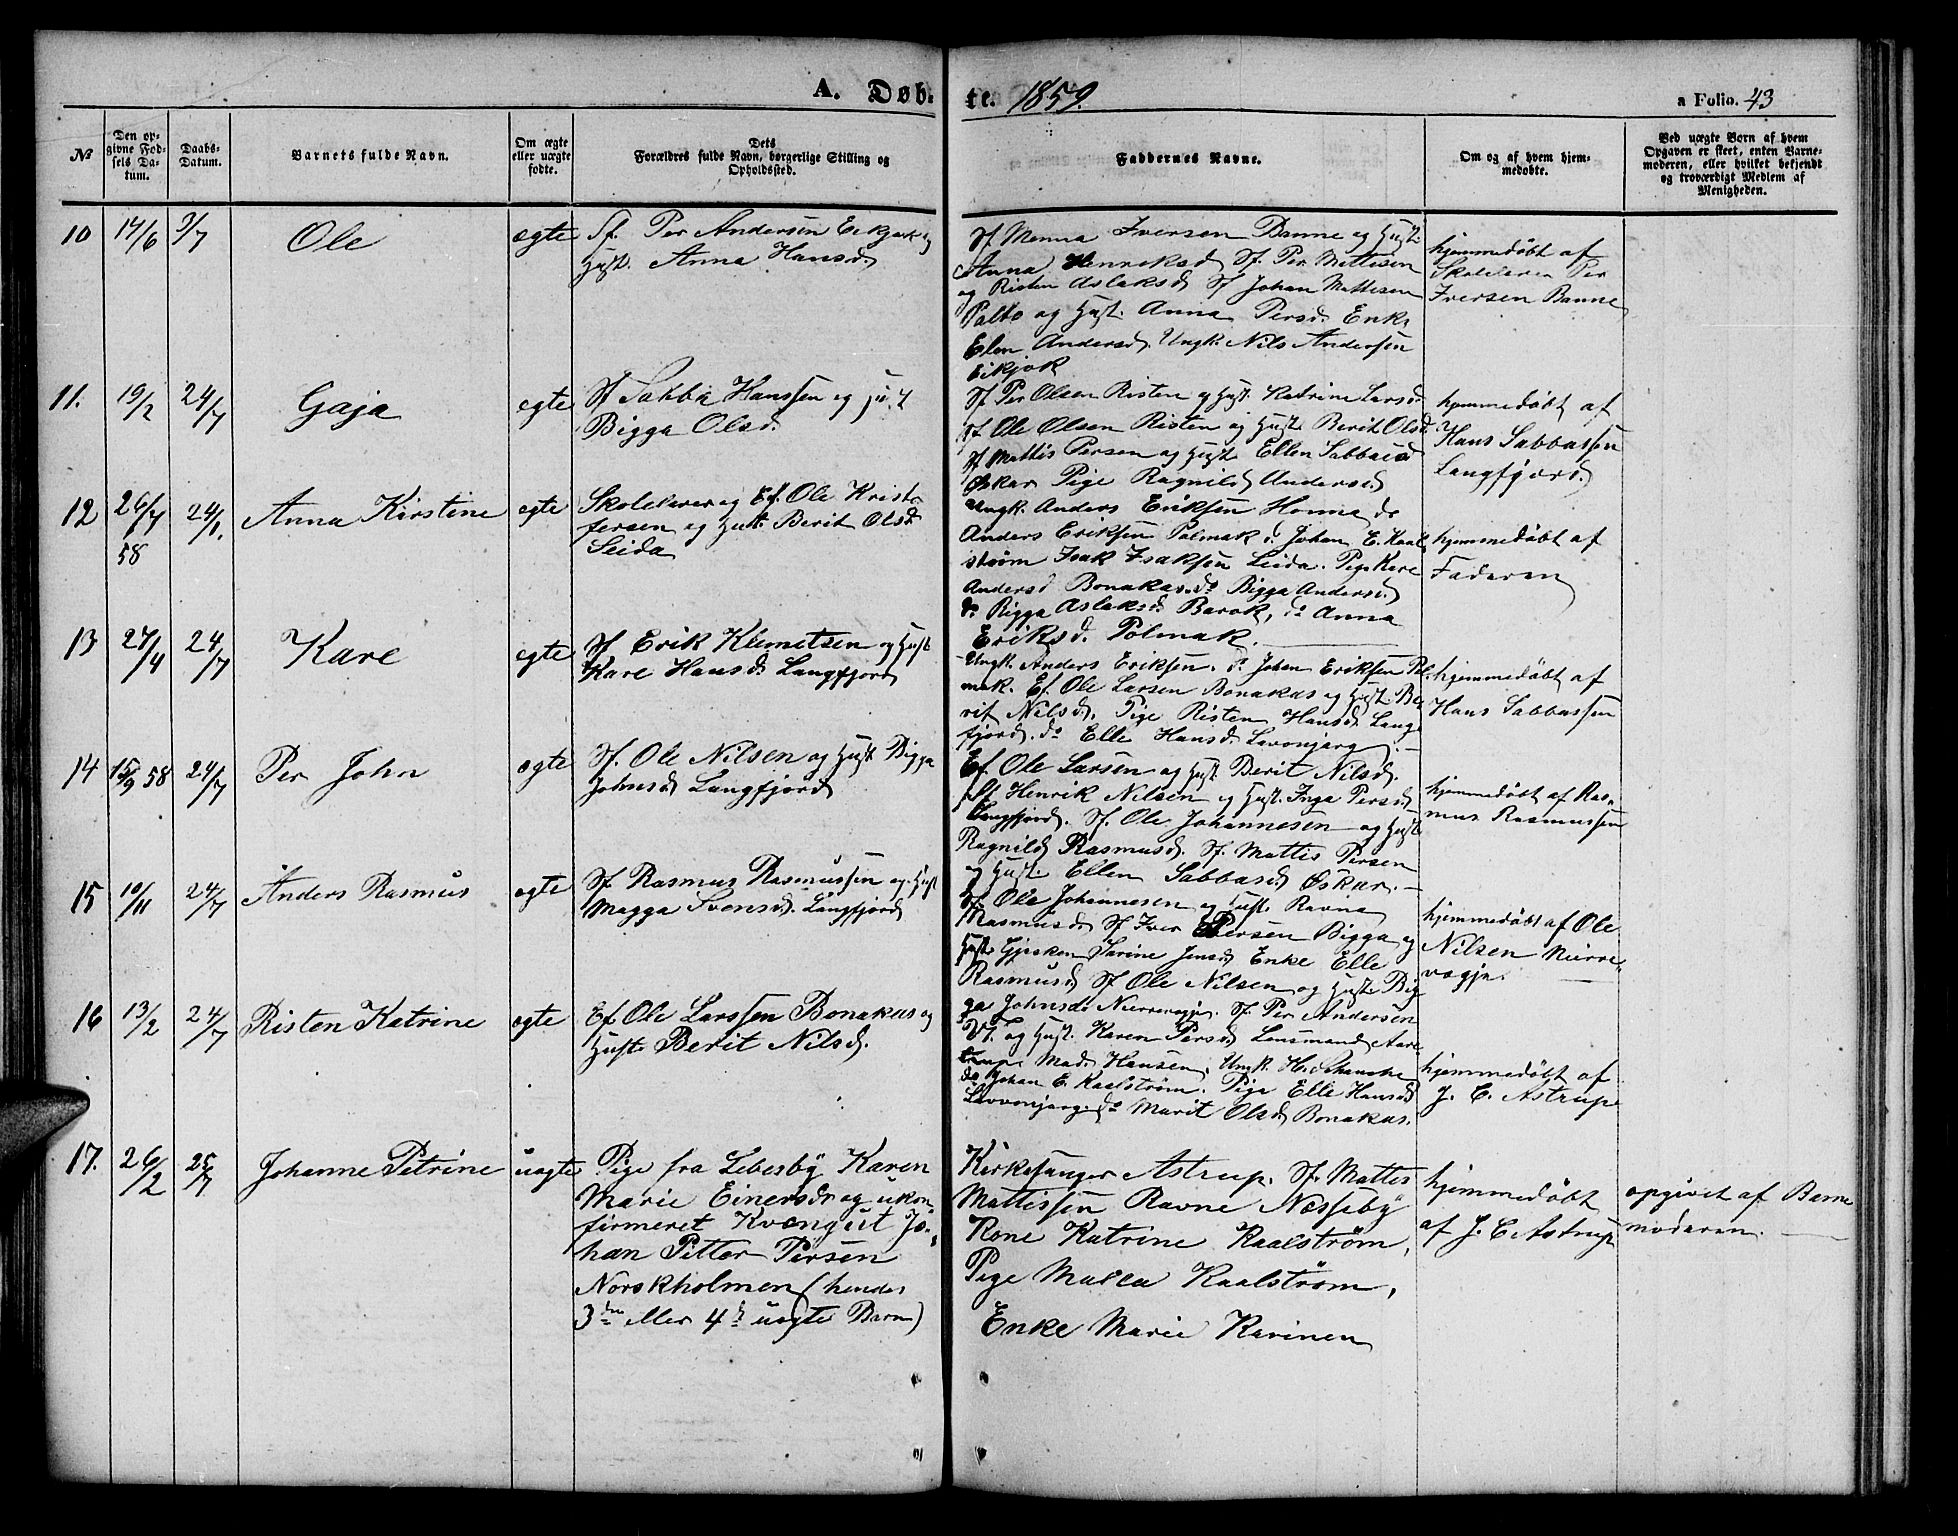 A. Døb-
te. 1859.
a Folio. 43
No
Den op-
givne Fød-
sels Da-
tum.
Daabs-
Datum.
Barnets fulde Navn.
Om ægte
eller uægte
fødte.
Dets
Forældres fulde Navn, borgerlige Stilling og
Opholdssted.
Faddernes Navne.
Om og af hvem hjem-
medøbte.
Ved uægte Børn af hvem
Opgaven er skeet, enten Barne-
moderen, eller hvilket bekjendt
og troværdigt Medlem af
Menigheden.
10 14/6 3/7 Ole ægte
Sf. Per Andersen Eikjok og
Hust. Anna Hansd.
Sf Menna Iversen Banne og Hust.
Anna Henriksd Sf. Per Mattisen
og Risten Aslaksd Sf Johan Mattesen
Palto og Hust. Anna Persd. Enke
Elen Andersd. Ungk. Nils Andersen
Eikjok
hjemmedøbt af
Skolelærer Per
Iversen Banne
11. 19/2 24/7 Gaja egte
Sf Sabba Hanssen og Hust
Bigga Olsd.
Sf Per Olsen Risten og Hust. Katrine Larsd.
Sf. Ole Olsen Risten og Hust. Berit Olsd
Sf Mattis Persen og Hust Ellen Sabbasd
Øskar Pige Ragnild Andersd
hjemmedøbt af
Hans Sabbassen
Langfjord.
12 26/7 58 24/7. Anna Kirstine egte
Skolelærer og Ef. Ole Kristo
fersen og Hust. Berit Olsd.
Seida
Ungk. Anders Eriksen Honna do
Anders Eriksen Polmak do Johan E. Kaal
strøm Isak Isaksen Seida. Pige Kare
Andersd Bonakas. do Bigga Andersd
do Bigga Aslaksd. Barok, do Anna
Eriksd. Polmak
hjemmedøbt af
Faderen
13 27/4 24/7 Kare egte
Sf Erik Klemetsen og Hust
Kare Hansd. Langfjord
Ungk. Anders Eriksen. do Johan Eriksen Pol
mak. Ef. Ole Larsen Bonakas og Hust. Be
rit Nilsd. Pige Risten Hansd. Lang
fjord. do Elle Hansd. Lavonjarg
hjemmedøbt af
Hans Sabbassen
14 15/9 58 24/7 Per John egte
Sf. Ole Nilsen og Hust Bigga
Johnsd Langfjord
Ef. Ole Larsen og Hust. Berit Nilsd.
Sf Henrik Nilsen og Hust. Inga Persd
Langfjord. Sf. Ole Johannesen og Hust
Ragnild Rasmusd. Sf. Mattis Persen
og Hust. Ellen Sabbasd Øskar.
hjemmedøbt af Ras-
mus Rasmussen
15 10/11 24/7 Anders Rasmus egte
Sf. Rasmus Rasmussen og Hust
Magga Svensd. Langfjord
Sf Ole Johannesen og Hust. Ravna
Rasmusd Sf Iver Persen Bigga og
Hust Gjesken Sarine Jensd Enke Elle
Rasmusd Sf Ole Nilsen og Hust. Big
ga Johnsd. Nierrevagje. Sf. Per Andersen
hjemmedøbt af Ole
Nilsen Nierre-
vagje.
16 13/2 24/7 Risten Katrine egte
Ef. Ole Larssen Bonakas og
Hust. Berit Nilsd.
og Hust. Karen Persd Lensmand Aare
Mad. Hansen, Ungk. H. Schanche
do Johan E. Kaalstrøm. Pige Elle Hansd
Lavvonjarg do Marit Olsd Bonakas.
hjemmedøbt af
J. C. Astrup
17. 26/2 25/7 Johanne Petrine uægte
Pige fra Lebesby Karen
Marie Einersdr og ukon
firmeret Kvængut Jo-
han Petter Persen
Norskholmen (hendes
3die eller 4de uægte Barn)
Kirkesanger Astrup. Sf. Mattes
Mattissen Ravne Næsseby
Kone Katrine Kaalstrøm,
Pige Malla Kaalstrøm,
Enke Marie Karinen
hjemmedøbt
af J. C. Astrup
opgivet af Barne
moderen.